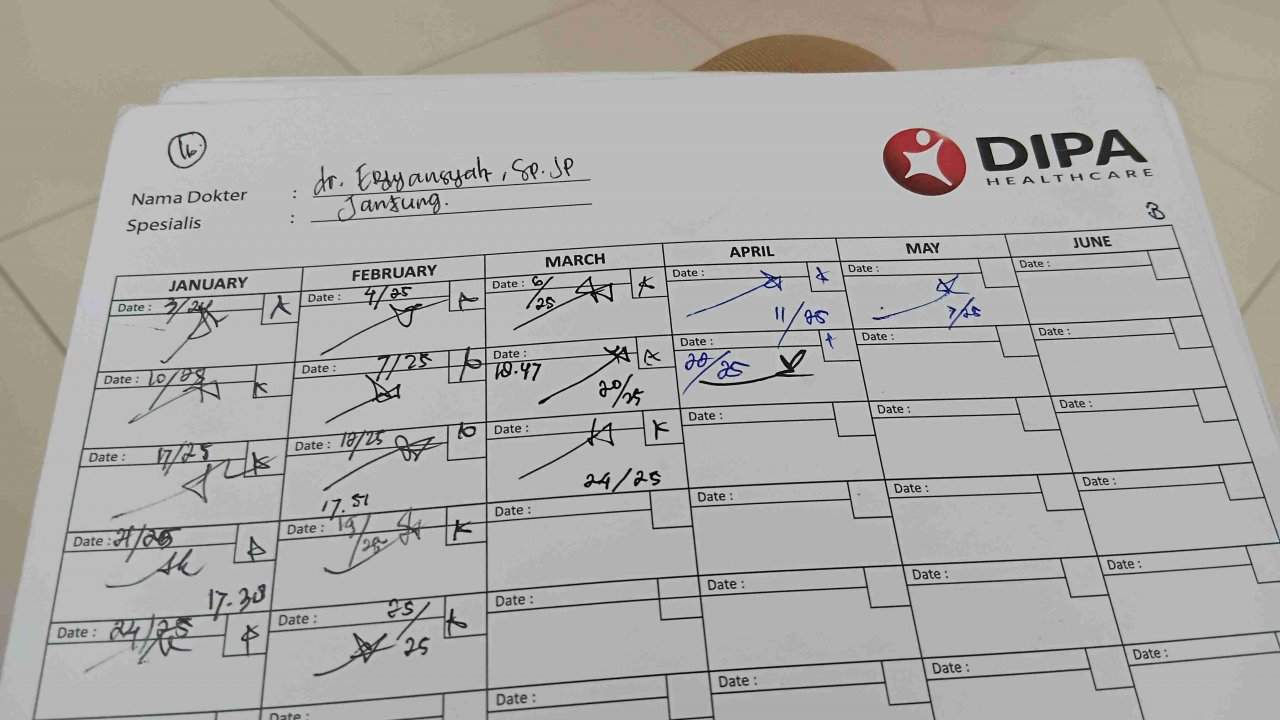 16.
DIPA
HEALTHCARE
Nama Dokter :
Spesialis : Jantung.
B
JANUARY FEBRUARY MARCH APRIL MAY JUNE
Date : 3/24 Date : 4/25 Date : 6/25 Date : 11/25 Date : 7/25 Date :
Date : 10/25 Date : 7/25 Date : 18.47 20/25 Date : 28/25 Date : Date :
Date : 17/25 Date : 12/25 Date : 24/25 Date : Date : Date :
Date : 21/25 17.30 Date : 17.51 19/25 Date : Date : Date : Date :
Date : 24/25 Date : 25/25 Date : Date : Date : Date :
Date : Date : Date : Date : Date :